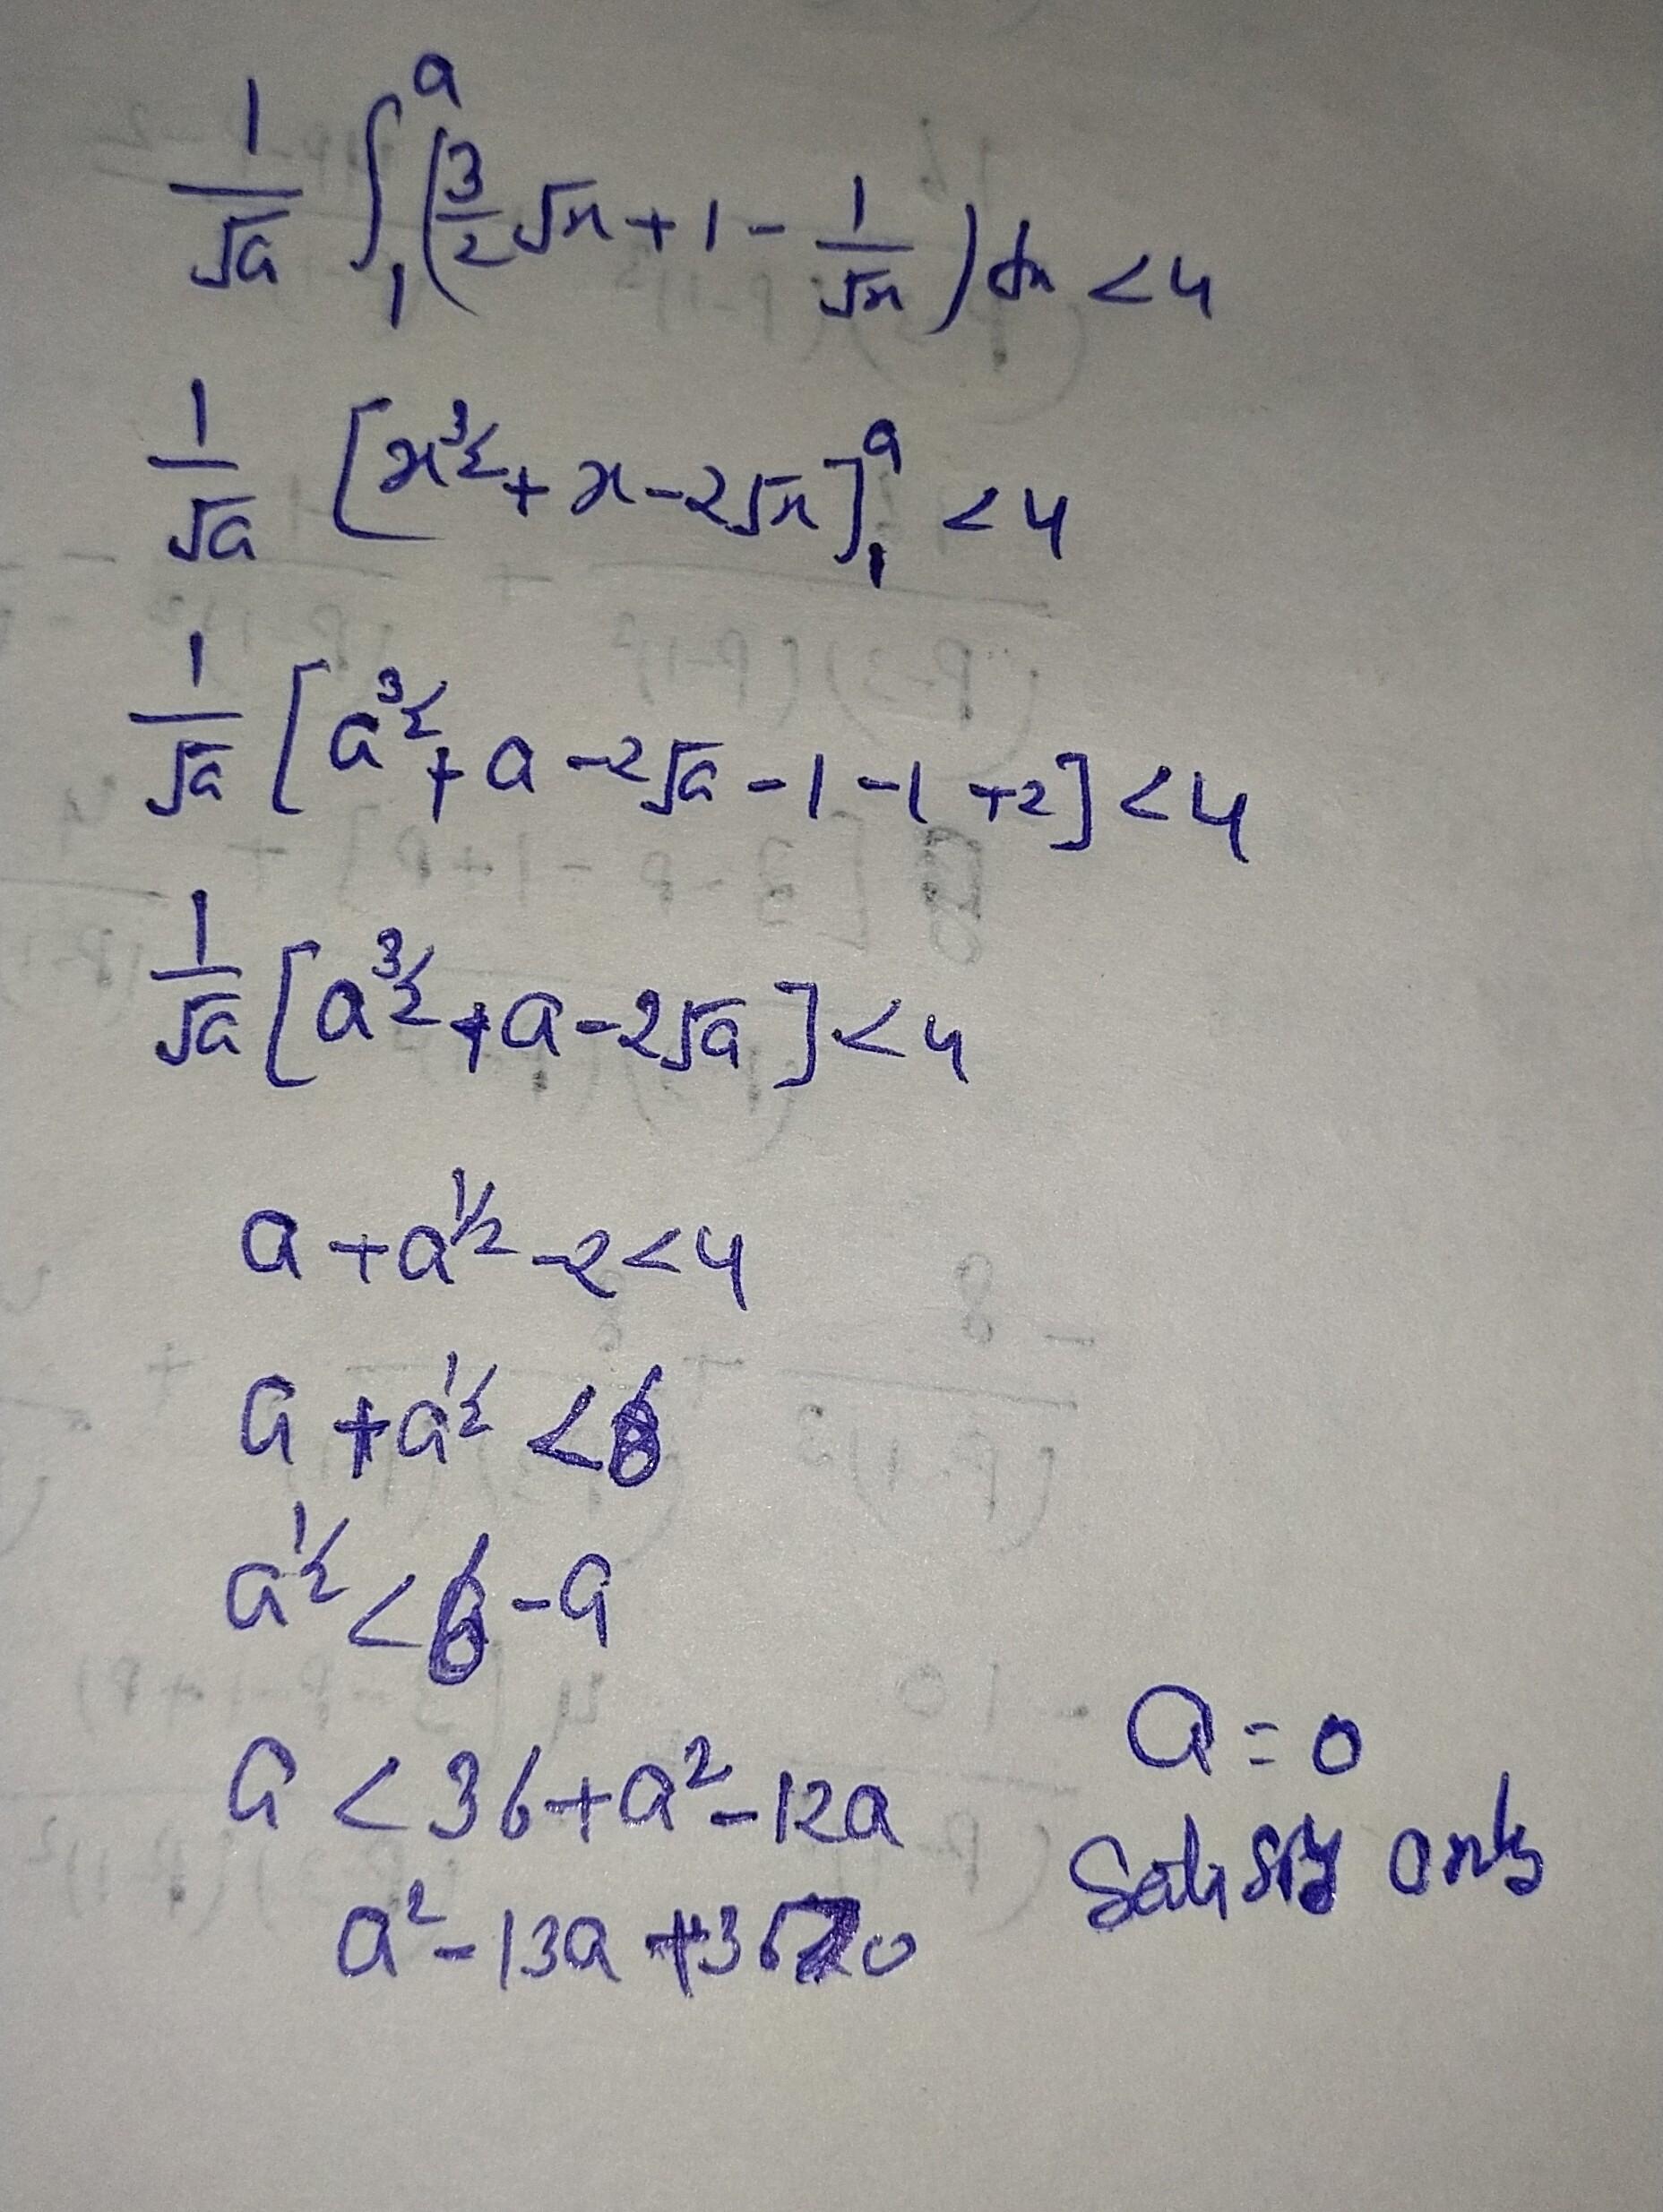 1/√a ∫₁ᵃ (3/2 √x + 1 - 1/√x) dx < 4
1/√a [x^3/2 + x - 2√x]₁ᵃ < 4
1/√a [a^3/2 + a - 2√a - 1 - 1 + 2] < 4
1/√a [a^3/2 + a - 2√a] < 4
a + a^1/2 - 2 < 4
a + a^1/2 < 6
a^1/2 < 6 - a
a < 36 + a² - 12a
a² - 13a + 36 > 0
a = 0
Satisfy only